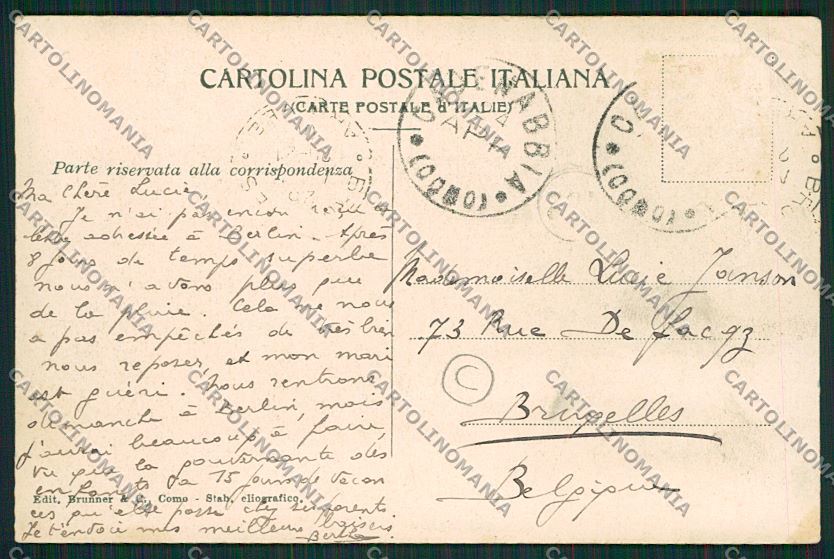 CARTOLINA POSTALE ITALIANA
(CARTE POSTALE d'ITALIE)
CADENABBIA
(COMO)
(COMO)
Parte riservata alla corrispondenza
Ma Chère Lucie,
Je n'ai pas encore reçu ta
lettre adressée à Berlin. Après
8 jours de temps superbe
nous n'avons plus que
de la pluie. Cela ne nous
a pas empêchés de très bien
nous reposer, et mon mari
est guéri. Nous rentrons
dimanche à Berlin, mais
j'aurai beaucoup à faire,
vu que la gouvernante des
enfants a 15 jours de vacan
ces qu'elle passe chez ses parents
Je t'envoie mes meilleurs baisers.
Berthe
Edit. Brunner & C., Como - Stab. eliografico.
Mademoiselle Lucie Janson
73 Rue De Facqz
Bruxelles
Belgique
C
CARTOLINOMANIA